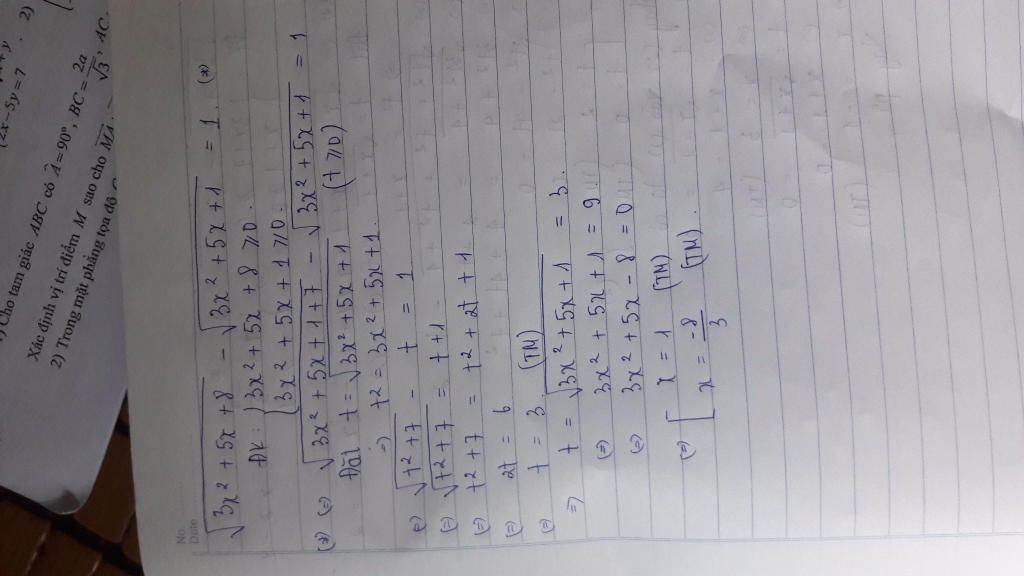 (2x-5y=7 . 2)
Cho tam giác ABC có Â = 90°, BC = 2a/√3, AC
Xác định vị trí điểm M sao cho MA
2) Trong mặt phẳng tọa độ
No.
Date
√(3x² + 5x + 8) - √(3x² + 5x + 1) = 1. (*)
ĐK: { 3x² + 5x + 8 ≥ 0
{ 3x² + 5x + 1 ≥ 0.
(*) (=) √(3x² + 5x + 1 + 7) - √(3x² + 5x + 1) = 1
Đặt t = √(3x² + 5x + 1) (t ≥ 0)
=) t² = 3x² + 5x + 1.
(=) √(t² + 7) - t = 1
(=) √(t² + 7) = t + 1
(=) t² + 7 = t² + 2t + 1
(=) 2t = 6
(=) t = 3. (TM)
=) t = √(3x² + 5x + 1) = 3.
(=) 3x² + 5x + 1 = 9
(=) 3x² + 5x - 8 = 0
(=) [ x = 1 (TM)
[ x = -8/3 (TM).